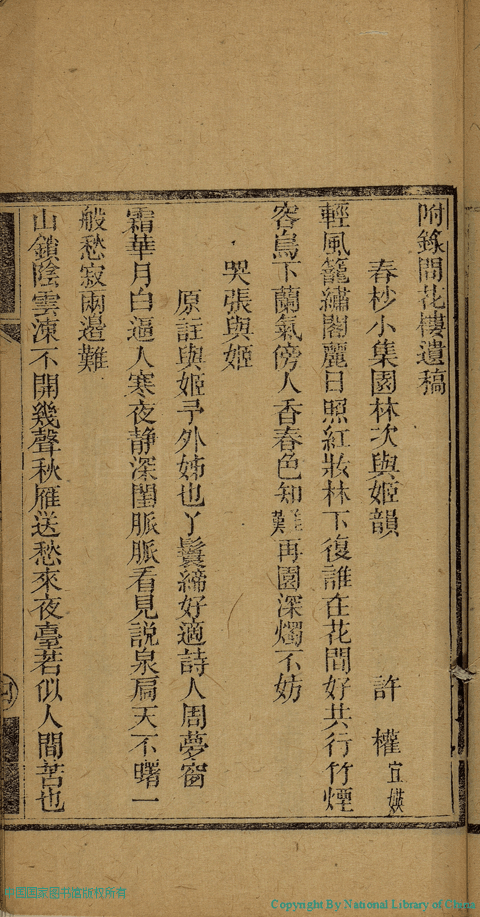 附錄問花樓遺稿
春杪小集園林次與姬韻 許權宜媖
輕風籠繡閣麗日照紅妝林下復誰在花間好共行竹煙
容鳥下蘭氣傍人香春色知難再園深燭不妨
哭張與姬
原註與姬予外姊也丫鬟締好適詩人周夢窗
霜華月白逼人寒夜静深閨脈脈看見說泉扃天不曙一
般愁寂兩邉難
山鎖陰雲凍不開幾聲秋雁送愁來夜臺若似人間苦也
中国国家图书馆版权所有
Copyright By National Library of China